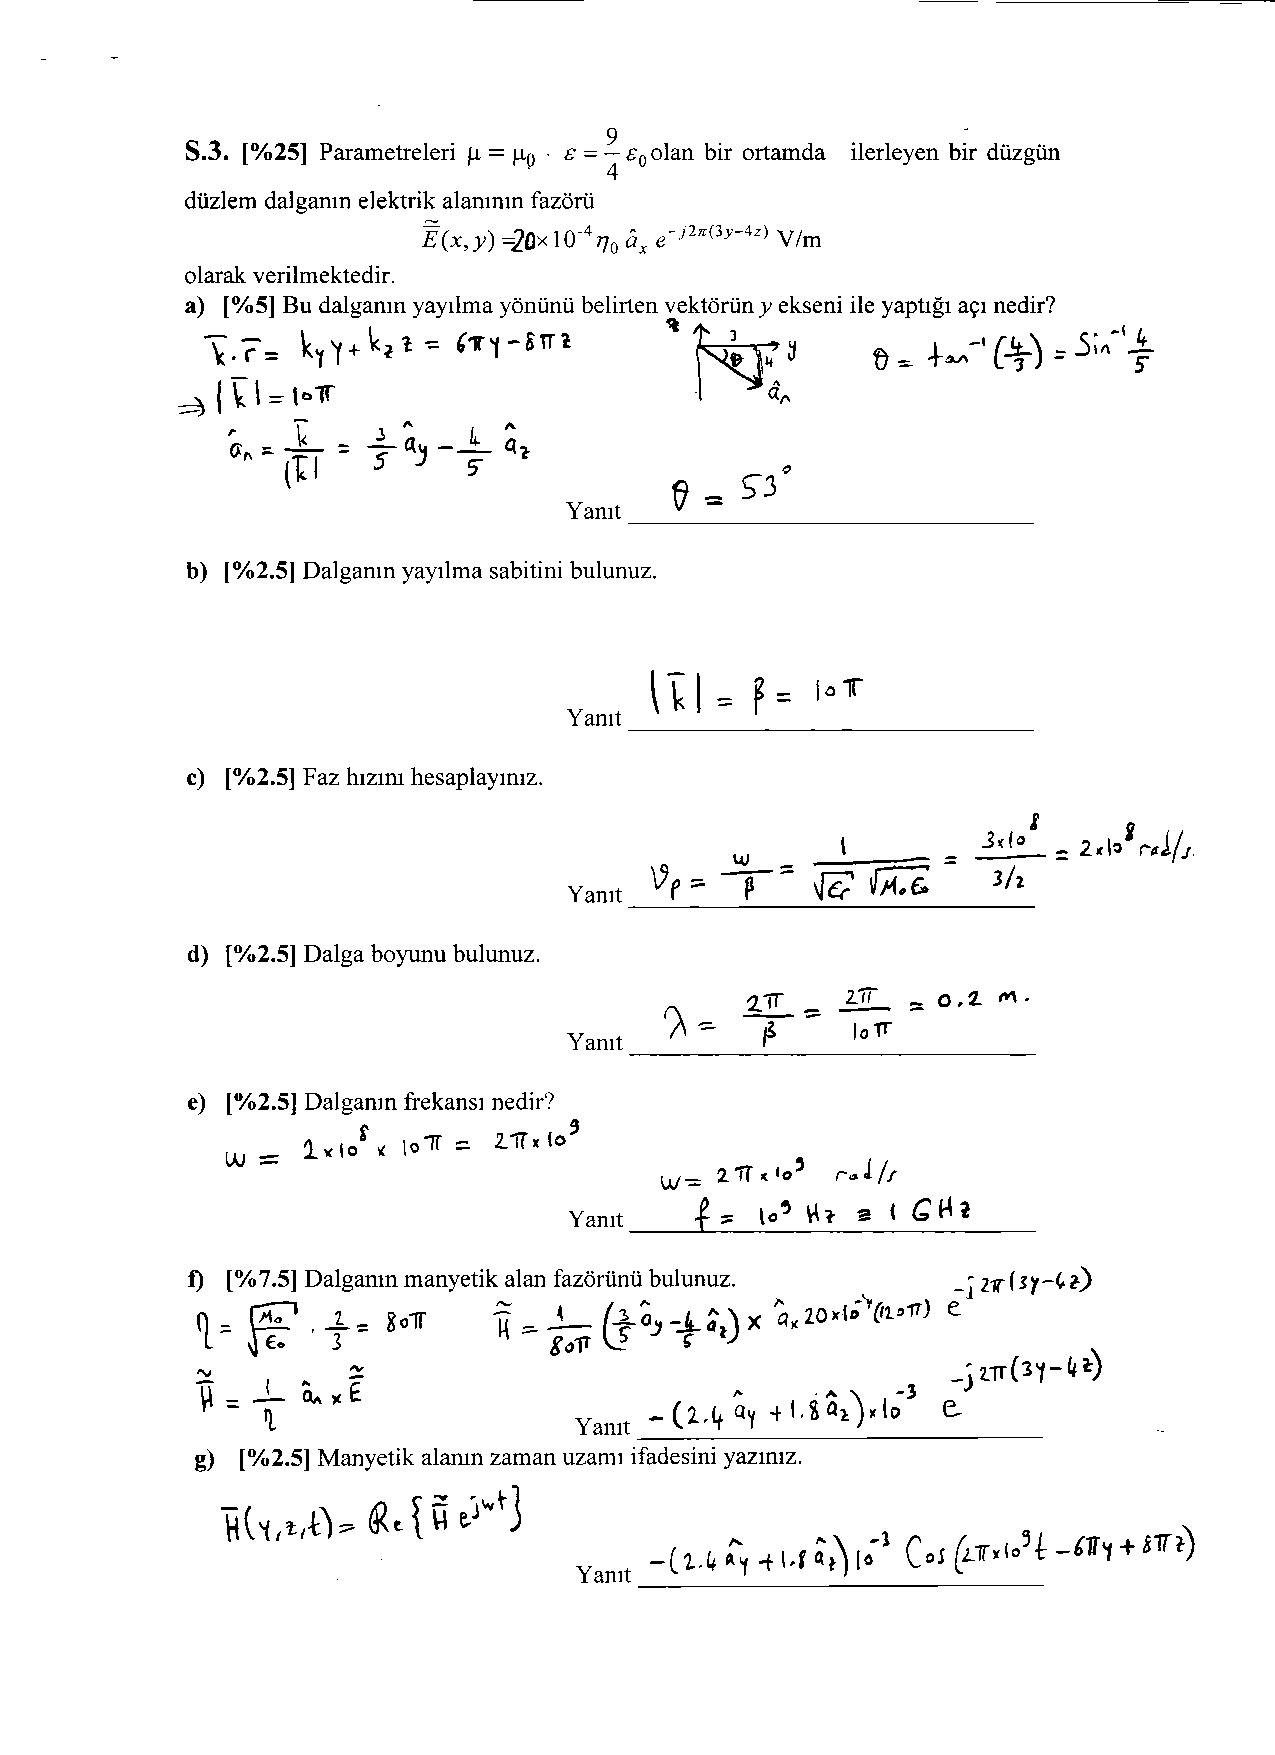 S.3. [%25] Parametreleri μ = μ₀ · ε = 9/4 ε₀ olan bir ortamda ilerleyen bir düzgün
düzlem dalganın elektrik alanının fazörü
Ẽ(x, y) = 20×10⁻⁴ η₀ â_x e^{-j2π(3y-4z)} V/m
olarak verilmektedir.
a) [%5] Bu dalganın yayılma yönünü belirten vektörün y ekseni ile yaptığı açı nedir?
k̄·r̄ = k_y y + k_z z = 6πy - 8πz
z 3 y θ 4 â_n
θ = tan⁻¹(4/3) = Sin⁻¹ 4/5
⇒ |k̄| = 10π
â_n = k̄/|k̄| = 3/5 â_y - 4/5 â_z
Yanıt θ = 53°
b) [%2.5] Dalganın yayılma sabitini bulunuz.
Yanıt |k̄| = β = 10π
c) [%2.5] Faz hızını hesaplayınız.
Yanıt ϑ_p = w/β = 1/(√ε_r √μ₀ε₀) = 3×10⁸/(3/2) = 2×10⁸ rad/s.
d) [%2.5] Dalga boyunu bulunuz.
Yanıt λ = 2π/β = 2π/10π = 0.2 m.
e) [%2.5] Dalganın frekansı nedir?
w = 2×10⁸ × 10π = 2π×10⁹
w = 2π×10⁹ rad/s
Yanıt f = 10⁹ Hz ≡ 1 GHz
f) [%7.5] Dalganın manyetik alan fazörünü bulunuz.
η = √(μ₀/ε₀) · 2/3 = 80π H̃ = 1/80π (3/5 â_y - 4/5 â_z) × â_x 20×10⁻⁴(120π) e^{-j2π(3y-4z)}
H̃ = 1/η â_n × Ẽ
Yanıt -(2.4 â_y + 1.8 â_z)×10⁻³ e^{-j2π(3y-4z)}
g) [%2.5] Manyetik alanın zaman uzamı ifadesini yazınız.
H̄(y,z,t) = Re{H̃ e^{jwt}}
Yanıt -(2.4 â_y + 1.8 â_z)10⁻³ Cos(2π×10⁹t - 6πy + 8πz)